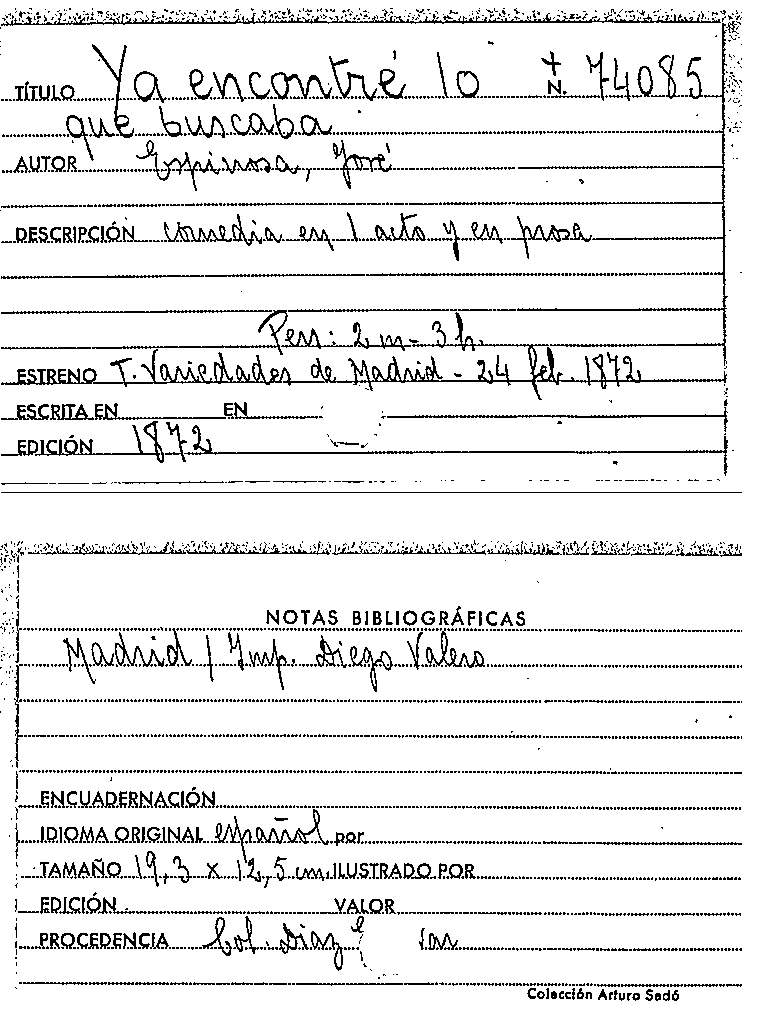 TÍTULO Ya encontré lo + N. 74085
que buscaba
AUTOR Espinosa, José
DESCRIPCIÓN comedia en 1 acto y en prosa
Pers: 2 m - 3 h.
ESTRENO T. Variedades de Madrid - 24 feb. 1872
ESCRITA EN EN
EDICIÓN 1872
NOTAS BIBLIOGRÁFICAS
Madrid / Imp. Diego Valero
ENCUADERNACIÓN
IDIOMA ORIGINAL español por
TAMAÑO 19,3 x 12,5 cm. ILUSTRADO POR
EDICIÓN VALOR
PROCEDENCIA Col. Diaz
Colección Arturo Sedó